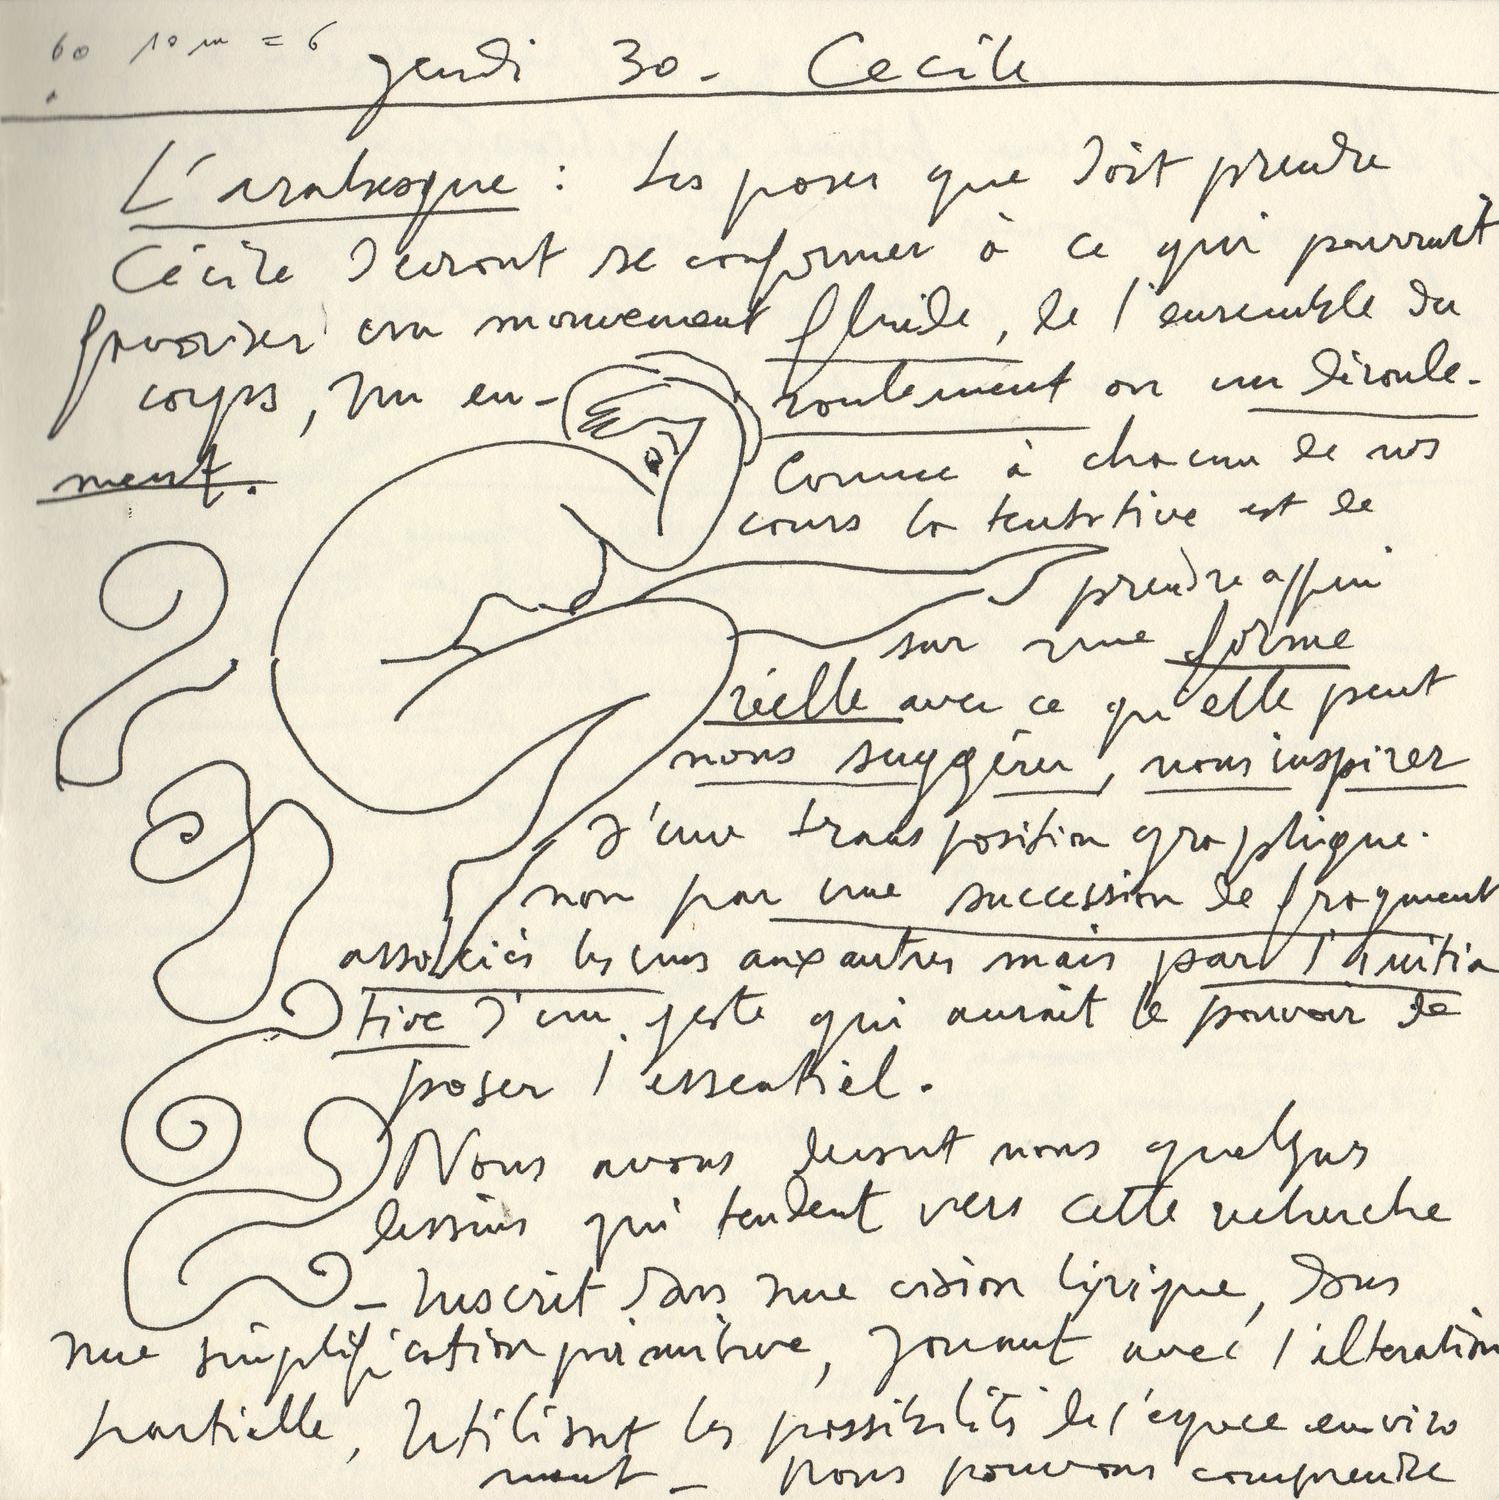 60 10 m = 6
jeudi 30 - Cécile
L'arabesque : Les poses que doit prendre
Cécile devront se conformer à ce qui pourrait
favoriser un mouvement fluide, de l'ensemble du
corps, un en- roulement ou un déroule-
ment.
Comme à chacun de nos
cours la tentative est de
prendre appui
sur une forme
réelle avec ce qu'elle peut
nous suggérer, nous inspirer
d'une transposition graphique.
non par une succession de fragment
associés les uns aux autres mais par l'initia
tive d'un geste qui aurait le pouvoir de
poser l'essentiel.
Nous avons devant nous quelques
dessins qui tendent vers cette recherche
- Inscrit dans une vision lyrique, dans
une simplification primitive, jouant avec l'altération
partielle, utilisant les possibilités de l'espace enviro
nant - nous pouvons comprendre